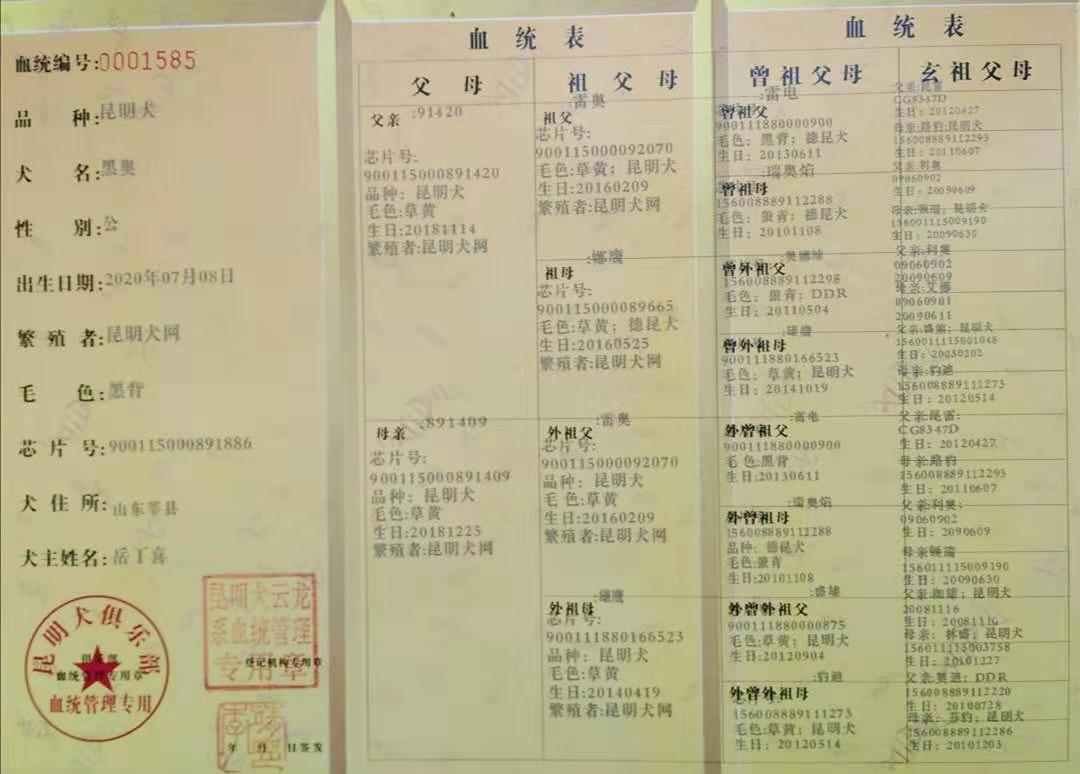 血统编号:0001585
品 种:昆明犬
犬 名:黑奥
性 别:公
出生日期:2020年07月08日
繁殖者:昆明犬网
毛 色:黑背
芯片号:900115000891886
犬住所:山东莘县
犬主姓名:岳丁喜
昆明犬俱乐部
血统管理专用章
血统管理专用
昆明犬云龙
系血统管理
专用章
登记机构专用章
年 月 日签发
血统表
父母
祖父母
父亲:91420
芯片号:
900115000891420
品种:昆明犬
毛色:草黄
生日:20181114
繁殖者:昆明犬网
母亲:891409
芯片号:
900115000891409
品种:昆明犬
毛色:草黄
生日:20181225
繁殖者:昆明犬网
:雷奥
祖父
芯片号:
900115000092070
毛色:草黄;昆明犬
生日:20160209
繁殖者:昆明犬网
:娜鹰
祖母
芯片号:
900115000089665
毛色:草黄;德昆犬
生日:20160525
繁殖者:昆明犬网
:雷奥
外祖父
芯片号:
900115000092070
品种:昆明犬
毛色:草黄
生日:20160209
繁殖者:昆明犬网
:雄鹰
外祖母
芯片号:
900111880166523
品种:昆明犬
毛色:草黄
生日:20140419
繁殖者:昆明犬网
血统表
曾祖父母
玄祖父母
:雷电
曾祖父
900111880000900
毛色:黑背;德昆犬
生日:20130611
:瑞奥焰
曾祖母
156008889112288
毛色:狼青;德昆犬
生日:20101108
曾外祖父
156008889112298
毛色:狼青;DDR
生日:20110504
曾外祖母
900111880166523
毛色:草黄;昆明犬
生日:20141019
:雷电
外曾祖父
900111880000900
毛色:黑背
生日:20130611
:瑞奥焰
外曾祖母
156008889112288
品种:德昆犬
毛色:狼青
生日:20101108
:盛雄
外曾外祖父
900111880000875
毛色:草黄;昆明犬
生日:20120904
:豹迪
外曾外祖母
156008889111273
毛色:草黄;昆明犬
生日:20120514
父亲:昆雷
CG8347D
生日:20120427
母亲:路豹;昆明犬
156008889112293
生日:20110607
父亲:利奥
09060902
生日:20090609
母亲:顿瑞;昆明犬
156001115009190
生日:20090630
父亲:利奥
09060902
20090609
母亲:艾娜
09060901
20090611
父亲:盛熊;昆明犬
1560011115001048
生日:20050202
母亲:豹迪
156008889111273
生日:20120514
父亲:昆雷:
CG8347D
生日:20120427
母亲:路豹
156008889112293
生日:20110607
父亲:利奥;
09060902
生日:2090609
母亲顿瑞
1560111115009190
生日:20090630
父亲:咖雄;昆明犬
20081116
生日:20081116
母亲:林盛;昆明犬
1560011115003758
生日:20101227
父亲:奥迪;DDR
156008889112220
生日:20100728
母亲:莎豹;昆明犬
156008889112286
生日:20101203